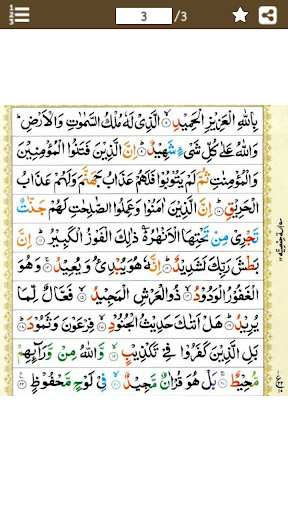 3 /3
بِاللّٰهِ الْعَزِيْزِ الْحَمِيْدِ ۙ‏﴿۸﴾ الَّذِىْ لَهٗ مُلْكُ السَّمٰوٰتِ وَالْاَرْضِ ؕ
وَاللّٰهُ عَلٰى كُلِّ شَىْءٍ شَهِيْدٌ ؕ‏﴿۹﴾ اِنَّ الَّذِيْنَ فَتَنُوا الْمُؤْمِنِيْنَ
وَالْمُؤْمِنٰتِ ثُمَّ لَمْ يَتُوْبُوْا فَلَهُمْ عَذَابُ جَهَنَّمَ وَلَهُمْ عَذَابُ
الْحَرِيْقِ ؕ‏﴿۱۰﴾ اِنَّ الَّذِيْنَ اٰمَنُوْا وَعَمِلُوا الصّٰلِحٰتِ لَهُمْ جَنّٰتٌ
تَجْرِىْ مِنْ تَحْتِهَا الْاَنْهٰرُ ؕ ذٰلِكَ الْفَوْزُ الْكَبِيْرُ ؕ‏﴿۱۱﴾ اِنَّ
بَطْشَ رَبِّكَ لَشَدِيْدٌ ؕ‏﴿۱۲﴾ اِنَّهٗ هُوَ يُبْدِئُ وَيُعِيْدُ ۚ‏﴿۱۳﴾ وَهُوَ
الْغَفُوْرُ الْوَدُوْدُ ۙ‏﴿۱۴﴾ ذُو الْعَرْشِ الْمَجِيْدُ ۙ‏﴿۱۵﴾ فَعَّالٌ لِّمَا
يُرِيْدُ ؕ‏﴿۱۶﴾ هَلْ اَتٰٮكَ حَدِيْثُ الْجُنُوْدِ ۙ‏﴿۱۷﴾ فِرْعَوْنَ وَثَمُوْدَ ؕ‏﴿۱۸﴾
بَلِ الَّذِيْنَ كَفَرُوْا فِىْ تَكْذِيْبٍ ۙ‏﴿۱۹﴾ وَّاللّٰهُ مِنْ وَّرَآٮِٕهِمْ
مُّحِيْطٌ ۚ‏﴿۲۰﴾ بَلْ هُوَ قُرْاٰنٌ مَّجِيْدٌ ۙ‏﴿۲۱﴾ فِىْ لَوْحٍ مَّحْفُوْظٍ ‏﴿۲۲﴾